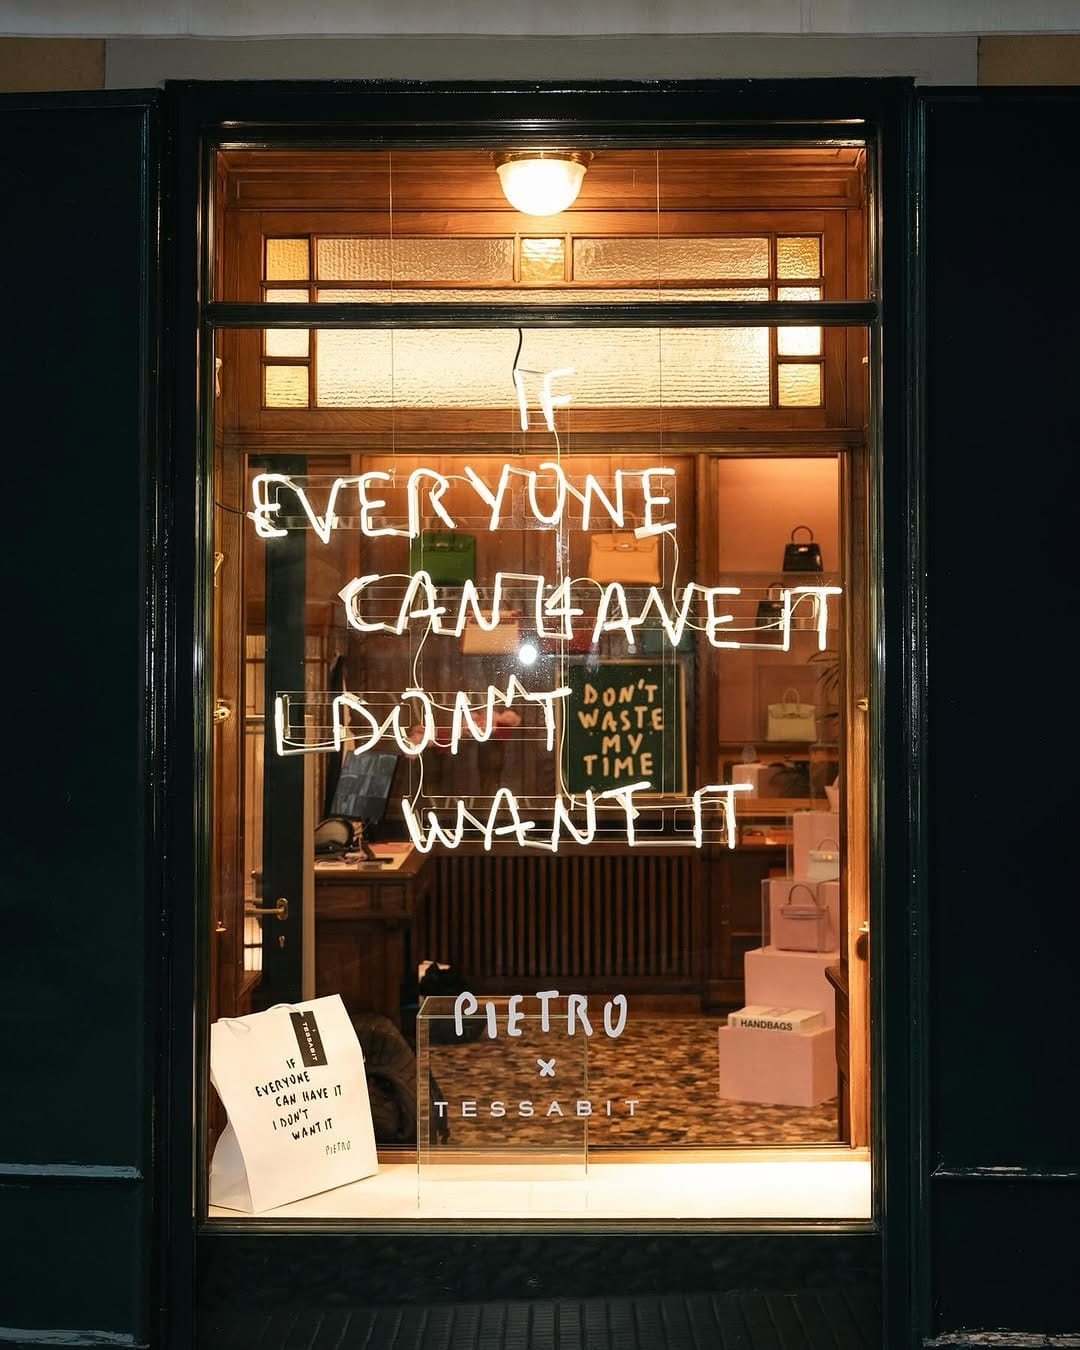 IF
EVERYONE
CAN HAVE IT
I DON'T
WANT IT
DON'T
WASTE
MY
TIME
HANDBAGS
PIETRO
×
TESSABIT
TESSABIT
IF
EVERYONE
CAN HAVE IT
I DON'T
WANT IT
PIETRO